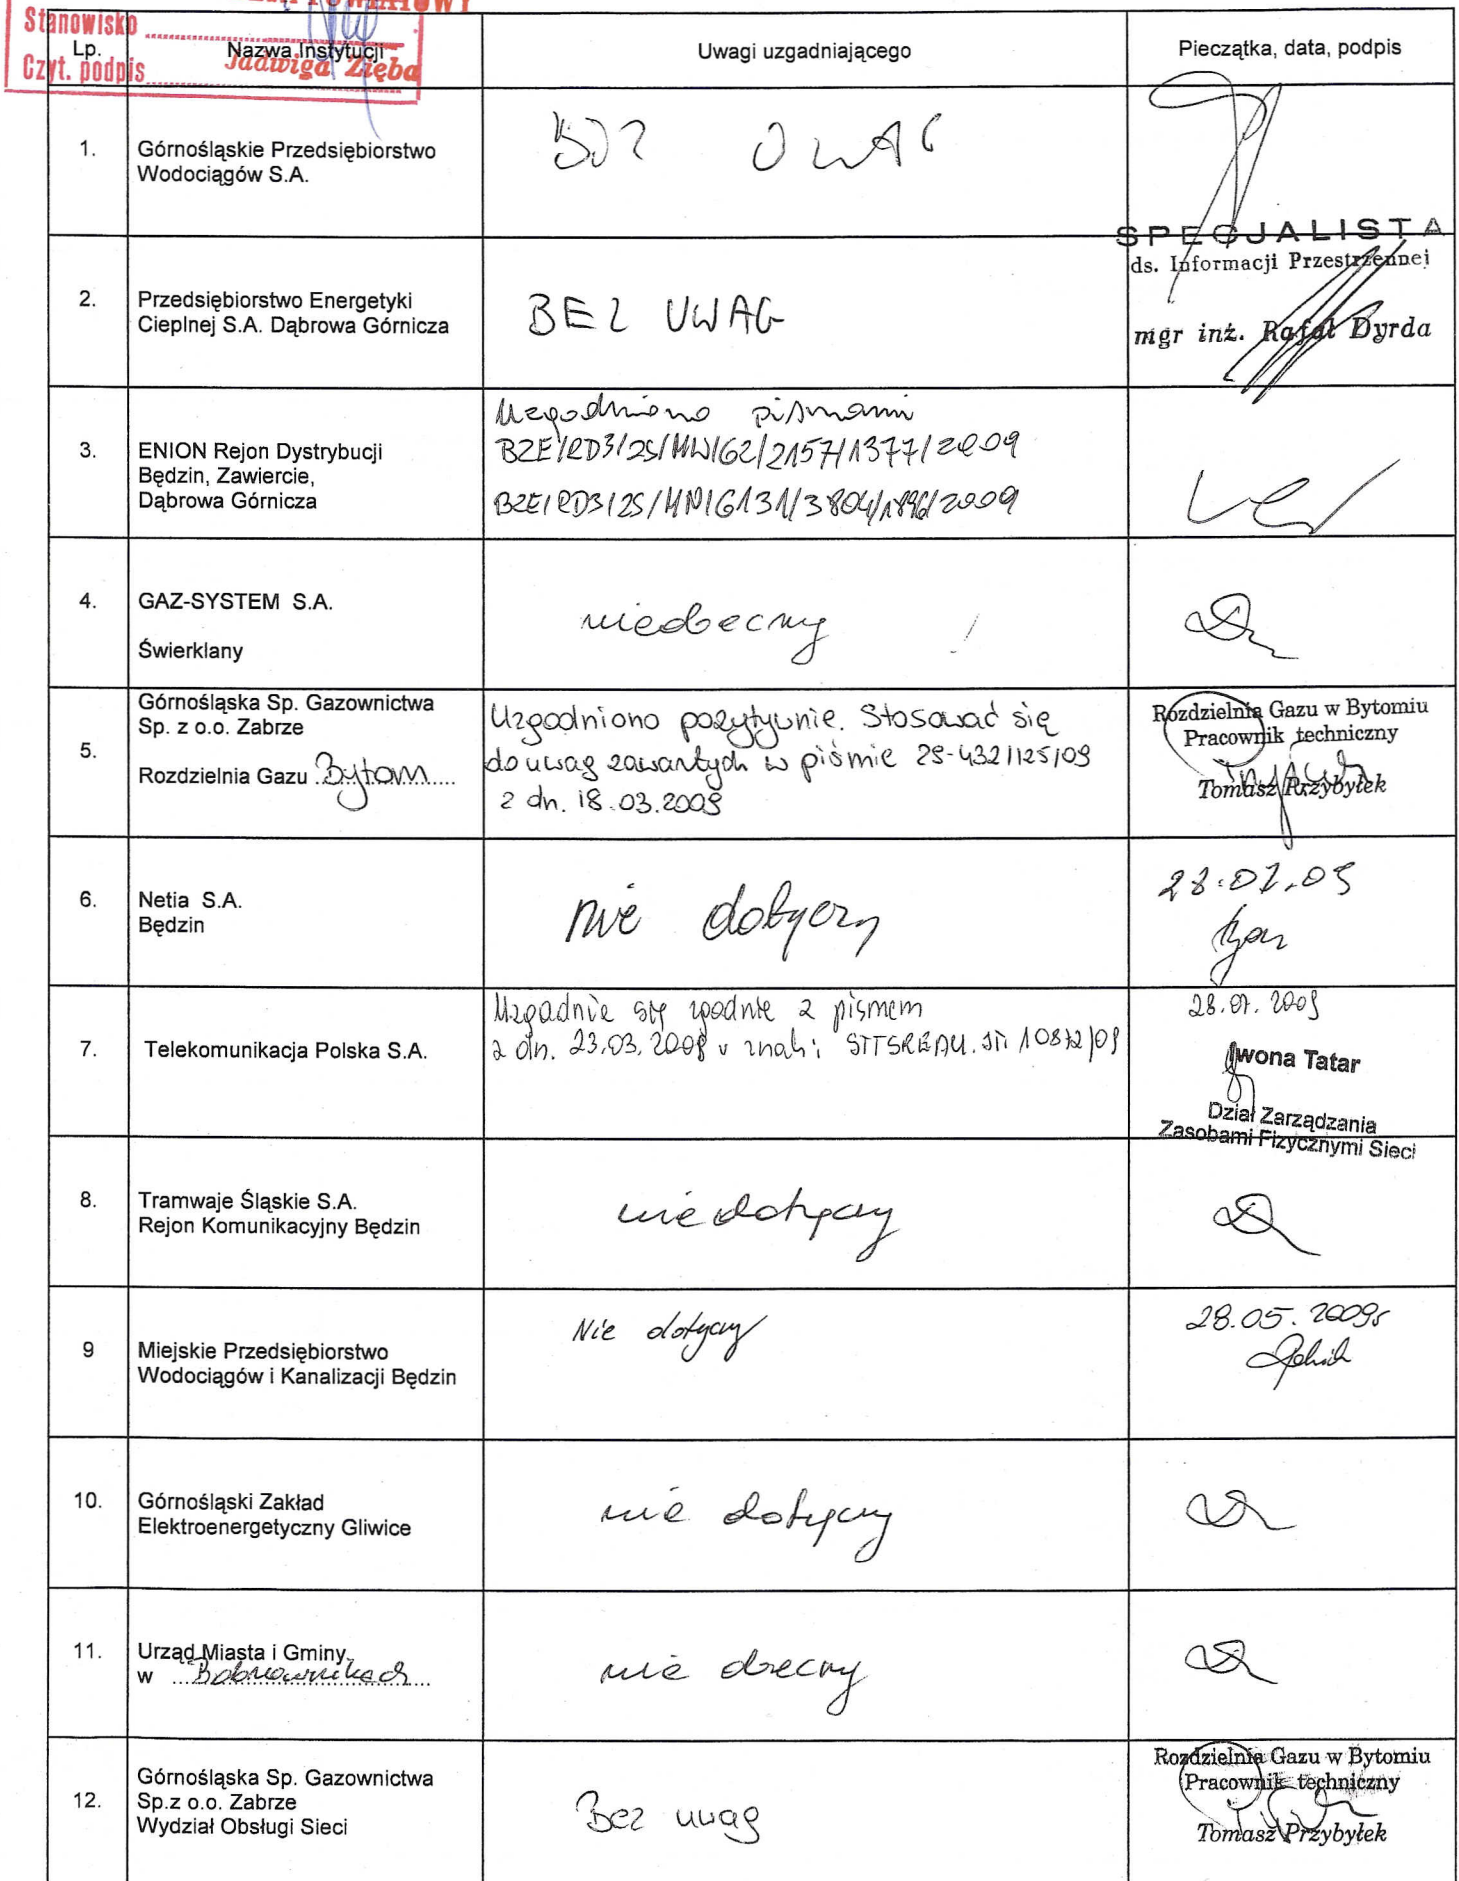 POWIATOWY
Stanowisko
Czyt. podpis Jadwiga Zięba
Lp. Nazwa Instytucji Uwagi uzgadniającego Pieczątka, data, podpis
1. Górnośląskie Przedsiębiorstwo
Wodociągów S.A.
BEZ UWAG
SPECJALISTA
ds. Informacji Przestrzennej
mgr inż. Rafał Dyrda
2. Przedsiębiorstwo Energetyki
Cieplnej S.A. Dąbrowa Górnicza
BEZ UWAG
3. ENION Rejon Dystrybucji
Będzin, Zawiercie,
Dąbrowa Górnicza
Uzgodniono pismami
BZE/RD3/ZS/MW/62/2157/1377/2009
BZE/RD3/ZS/MN/6131/3804/1896/2009
4. GAZ-SYSTEM S.A.
Świerklany
nieobecny
5. Górnośląska Sp. Gazownictwa
Sp. z o.o. Zabrze
Rozdzielnia Gazu Bytom
Uzgodniono pozytywnie. Stosować się
do uwag zawartych w piśmie ZS-432/125/09
z dn. 18.03.2009
Rozdzielnia Gazu w Bytomiu
Pracownik techniczny
Tomasz Przybyłek
6. Netia S.A.
Będzin
nie dotyczy
28.07.09
7. Telekomunikacja Polska S.A.
Uzgadnia się zgodnie z pismem
z dn. 23.03.2009 o znaku:
28.07.2009
Iwona Tatar
Dział Zarządzania
Zasobami Fizycznymi Sieci
8. Tramwaje Śląskie S.A.
Rejon Komunikacyjny Będzin
nie dotyczy
9 Miejskie Przedsiębiorstwo
Wodociągów i Kanalizacji Będzin
Nie dotyczy
28.05.2009r
10. Górnośląski Zakład
Elektroenergetyczny Gliwice
nie dotyczy
11. Urząd Miasta i Gminy
w Bobrownikach
nie obecny
12. Górnośląska Sp. Gazownictwa
Sp.z o.o. Zabrze
Wydział Obsługi Sieci
Bez uwag
Rozdzielnia Gazu w Bytomiu
Pracownik techniczny
Tomasz Przybyłek